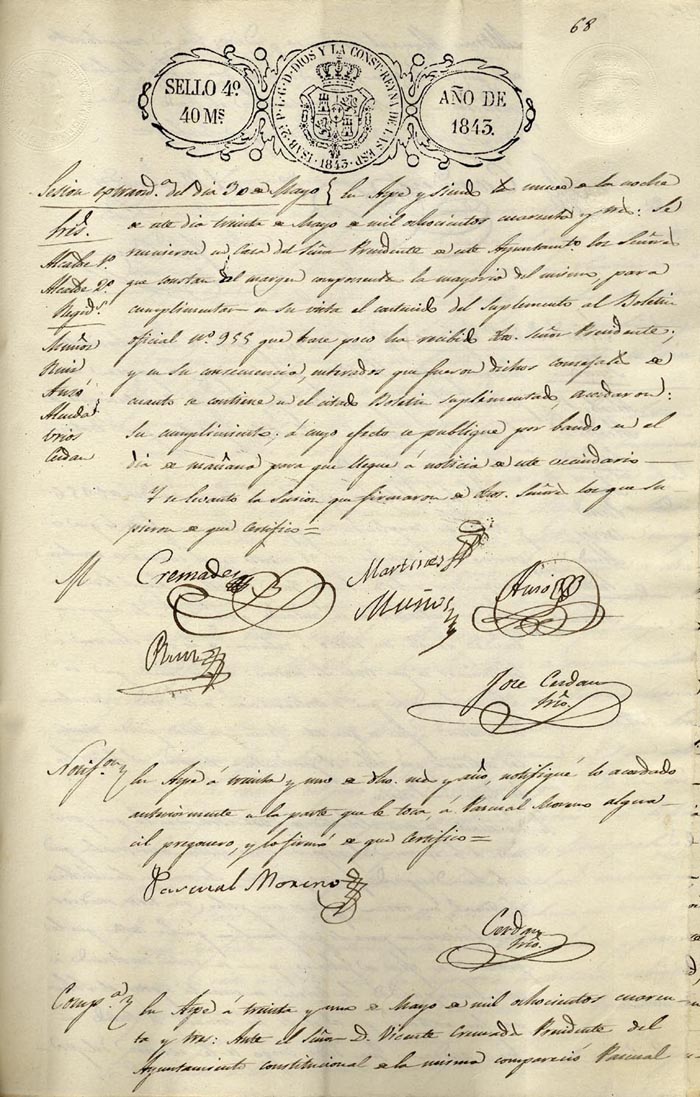 68
SELLO 4º.
40 Mˢ
ISAB. 2ª P. L. G. D. DIOS Y LA CONST. REYNA DE LAS ESP.
1843.
AÑO DE
1843.
Sesion extraord.ª del dia 30 de Mayo
Srˢ.
Alcalde 1º.
Alcalde 2º.
Regid.ˢ
Muñoz
Ruiz
Auso
Cerdan
En Aspe y siendo las nueve de la noche
de este dia treinta de Mayo de mil ochocientos cuarenta y tres: Se
reunieron en Casa del Señor Presidente de este Ayuntamto. los Señores
que constan al margen componentes la mayoria del mismo, para
cumplimentar en su vista el contenido del suplemento al Boletin
oficial nº. 955 que hace poco ha recibido dho. Señor Presidente;
y en su consecuencia, enterados que fueron dichos concejales de
cuanto se contiene en el citado Boletin suplementado, acordaron:
Su cumplimiento; á cuyo efecto se publique por bando en el
dia de mañana para que llegue á noticia de este vecindario
Y se levanto la Sesion que firmaron de dhos. Señores los que su
pieron de que Certifico=
Cremades
Martinez
Muñoz
Auso
Ruiz
Jose Cerdan
Srio.
Notif.on
En Aspe á treinta y uno de dho. mes y año, notifiqué lo acordado
anteriormente en la parte que le toca, á Pascual Moreno algua
cil pregonero, y lo firmó de que Certifico=
Pascual Moreno
Cerdan
Srio.
Comp.ª
En Aspe á treinta y uno de Mayo de mil ochocientos cuaren
ta y tres: Ante el Señor D. Vicente Cremades Presidente del
Ayuntamiento constitucional de la misma compareció Pascual